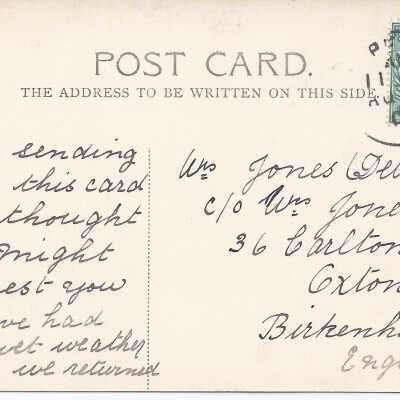 POST CARD.
THE ADDRESS TO BE WRITTEN ON THIS SIDE
sending
this card
thought
might
est you
ve had
wet weather
we returned
Mrs Jones (De
c/o Mrs Jone
36 Carlton
Oxton
Birkenh
Eng
11